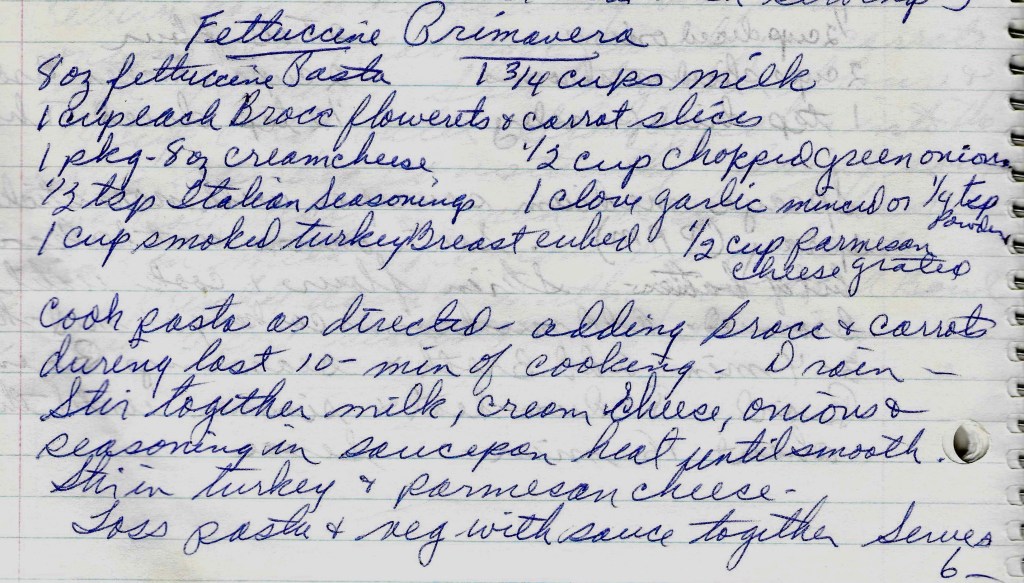 Fettuccine Primavera
8 oz fettuccine Pasta 1 3/4 cups milk
1 cup each Brocc flowerets & carrot slices
1 pkg - 8 oz creamcheese 1/2 cup chopped green onions
1/2 tsp Italian Seasonings 1 clove garlic minced or 1/4 tsp
powder
1 cup smoked turkey Breast cubed 1/2 cup parmesan
cheese grated
Cook pasta as directed - adding Brocc & carrots
during last 10 - min of cooking - Drain -
Stir together milk, cream cheese, onions &
seasoning in saucepan heat until smooth.
Stir in turkey & parmesan cheese -
Toss pasta & veg with sauce together Serves
6 -